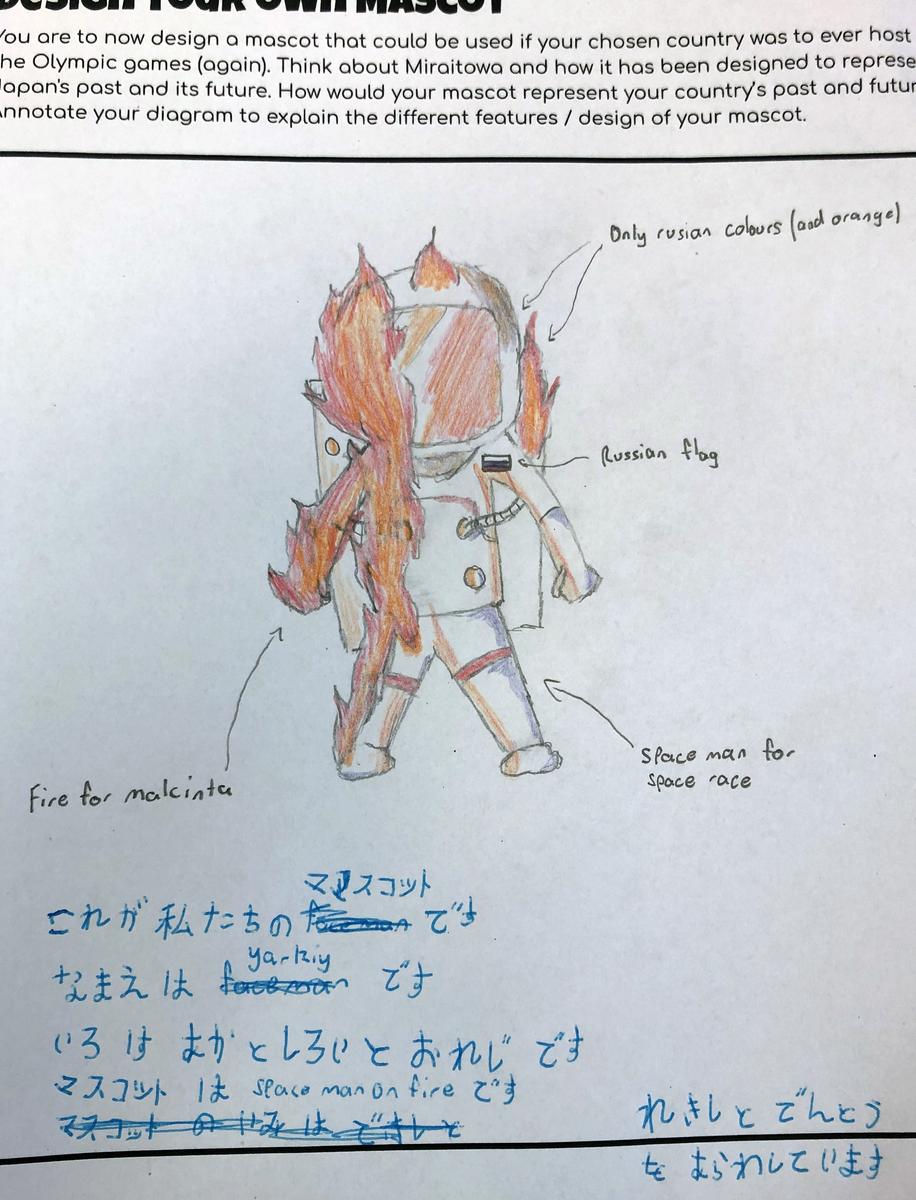 DESIGN YOUR OWN MASCOT
You are to now design a mascot that could be used if your chosen country was to ever host
the Olympic games (again). Think about Miraitowa and how it has been designed to represe
Japan's past and its future. How would your mascot represent your country's past and futur
Annotate your diagram to explain the different features / design of your mascot.
Only rusian colours (and orange)
Russian flag
Space man for
space race
Fire for malcinta
マスコット
これが私たちの です
yarkiy
なまえは です
いろは あかとしろいと おれじ です
マスコット は space man on fire です
れきしと でんとう
を あらわしています